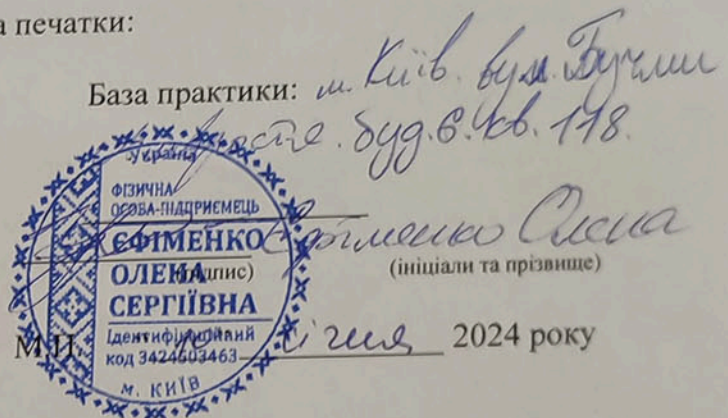 а печатки:
База практики: м. Київ. вул. Бучми
буд. 6. кв. 118.
Україна
ФІЗИЧНА
ОСОБА-ПІДПРИЄМЕЦЬ
ЄФІМЕНКО
ОЛЕНА
СЕРГІЇВНА
Ідентифікаційний
код 3424603463
м. КИЇВ
Єфіменко Олена
(підпис) (ініціали та прізвище)
М.П. січня 2024 року